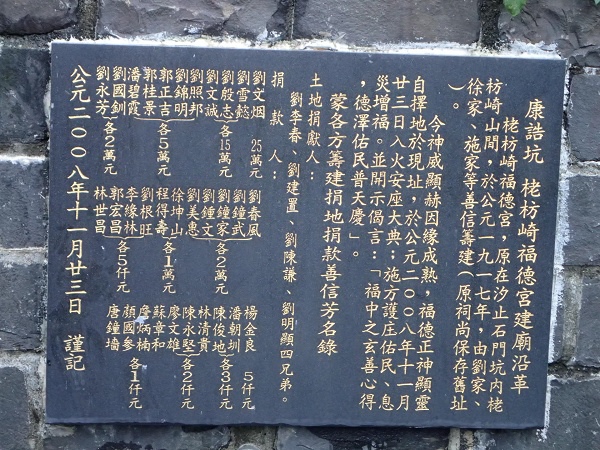 康誥坑 栳枋崎福德宮建廟沿革
栳枋崎福德宮，原在汐止石門坑內栳
枋崎山間，於公元一九一七年，由劉家、
徐家、施家等善信籌建（原祠尚保存舊址
）。
今神威顯赫因緣成熟，福德正神顯靈
自擇地於現址，於公元二00八年十一月
廿三日入火安座大典；施方護庄佑民、息
災增福。並開示偈言：「福中之玄善心得
，德澤佑民普天慶」。
蒙各方籌建捐地捐款善信芳名錄
土地捐獻人：
劉李春、劉建置、劉陳謙、劉明顯四兄弟。
捐款人：
劉文烟 25萬元
劉雪懿
劉殷志
劉文誠
各15萬元
劉照邦
劉錦明
郭正吉
郭桂景
各5萬元
潘碧霞
劉國釗
劉永芳
各2萬元
劉春風
劉鐘武
劉鐘家
劉鐘文
各2萬元
劉美惠
徐坤山
程得壽
劉根旺
各1萬元
李緣林
郭宏昌
林世昌
各5仟元
楊金良 5仟元
潘朝圳
陳俊地
林清貴
各3仟元
陳永堅
廖文雄
蘇章和
各2仟元
詹炳楠
顏國參
唐鐘墻
各1仟元
公元二00八年十一月廿三日 謹記